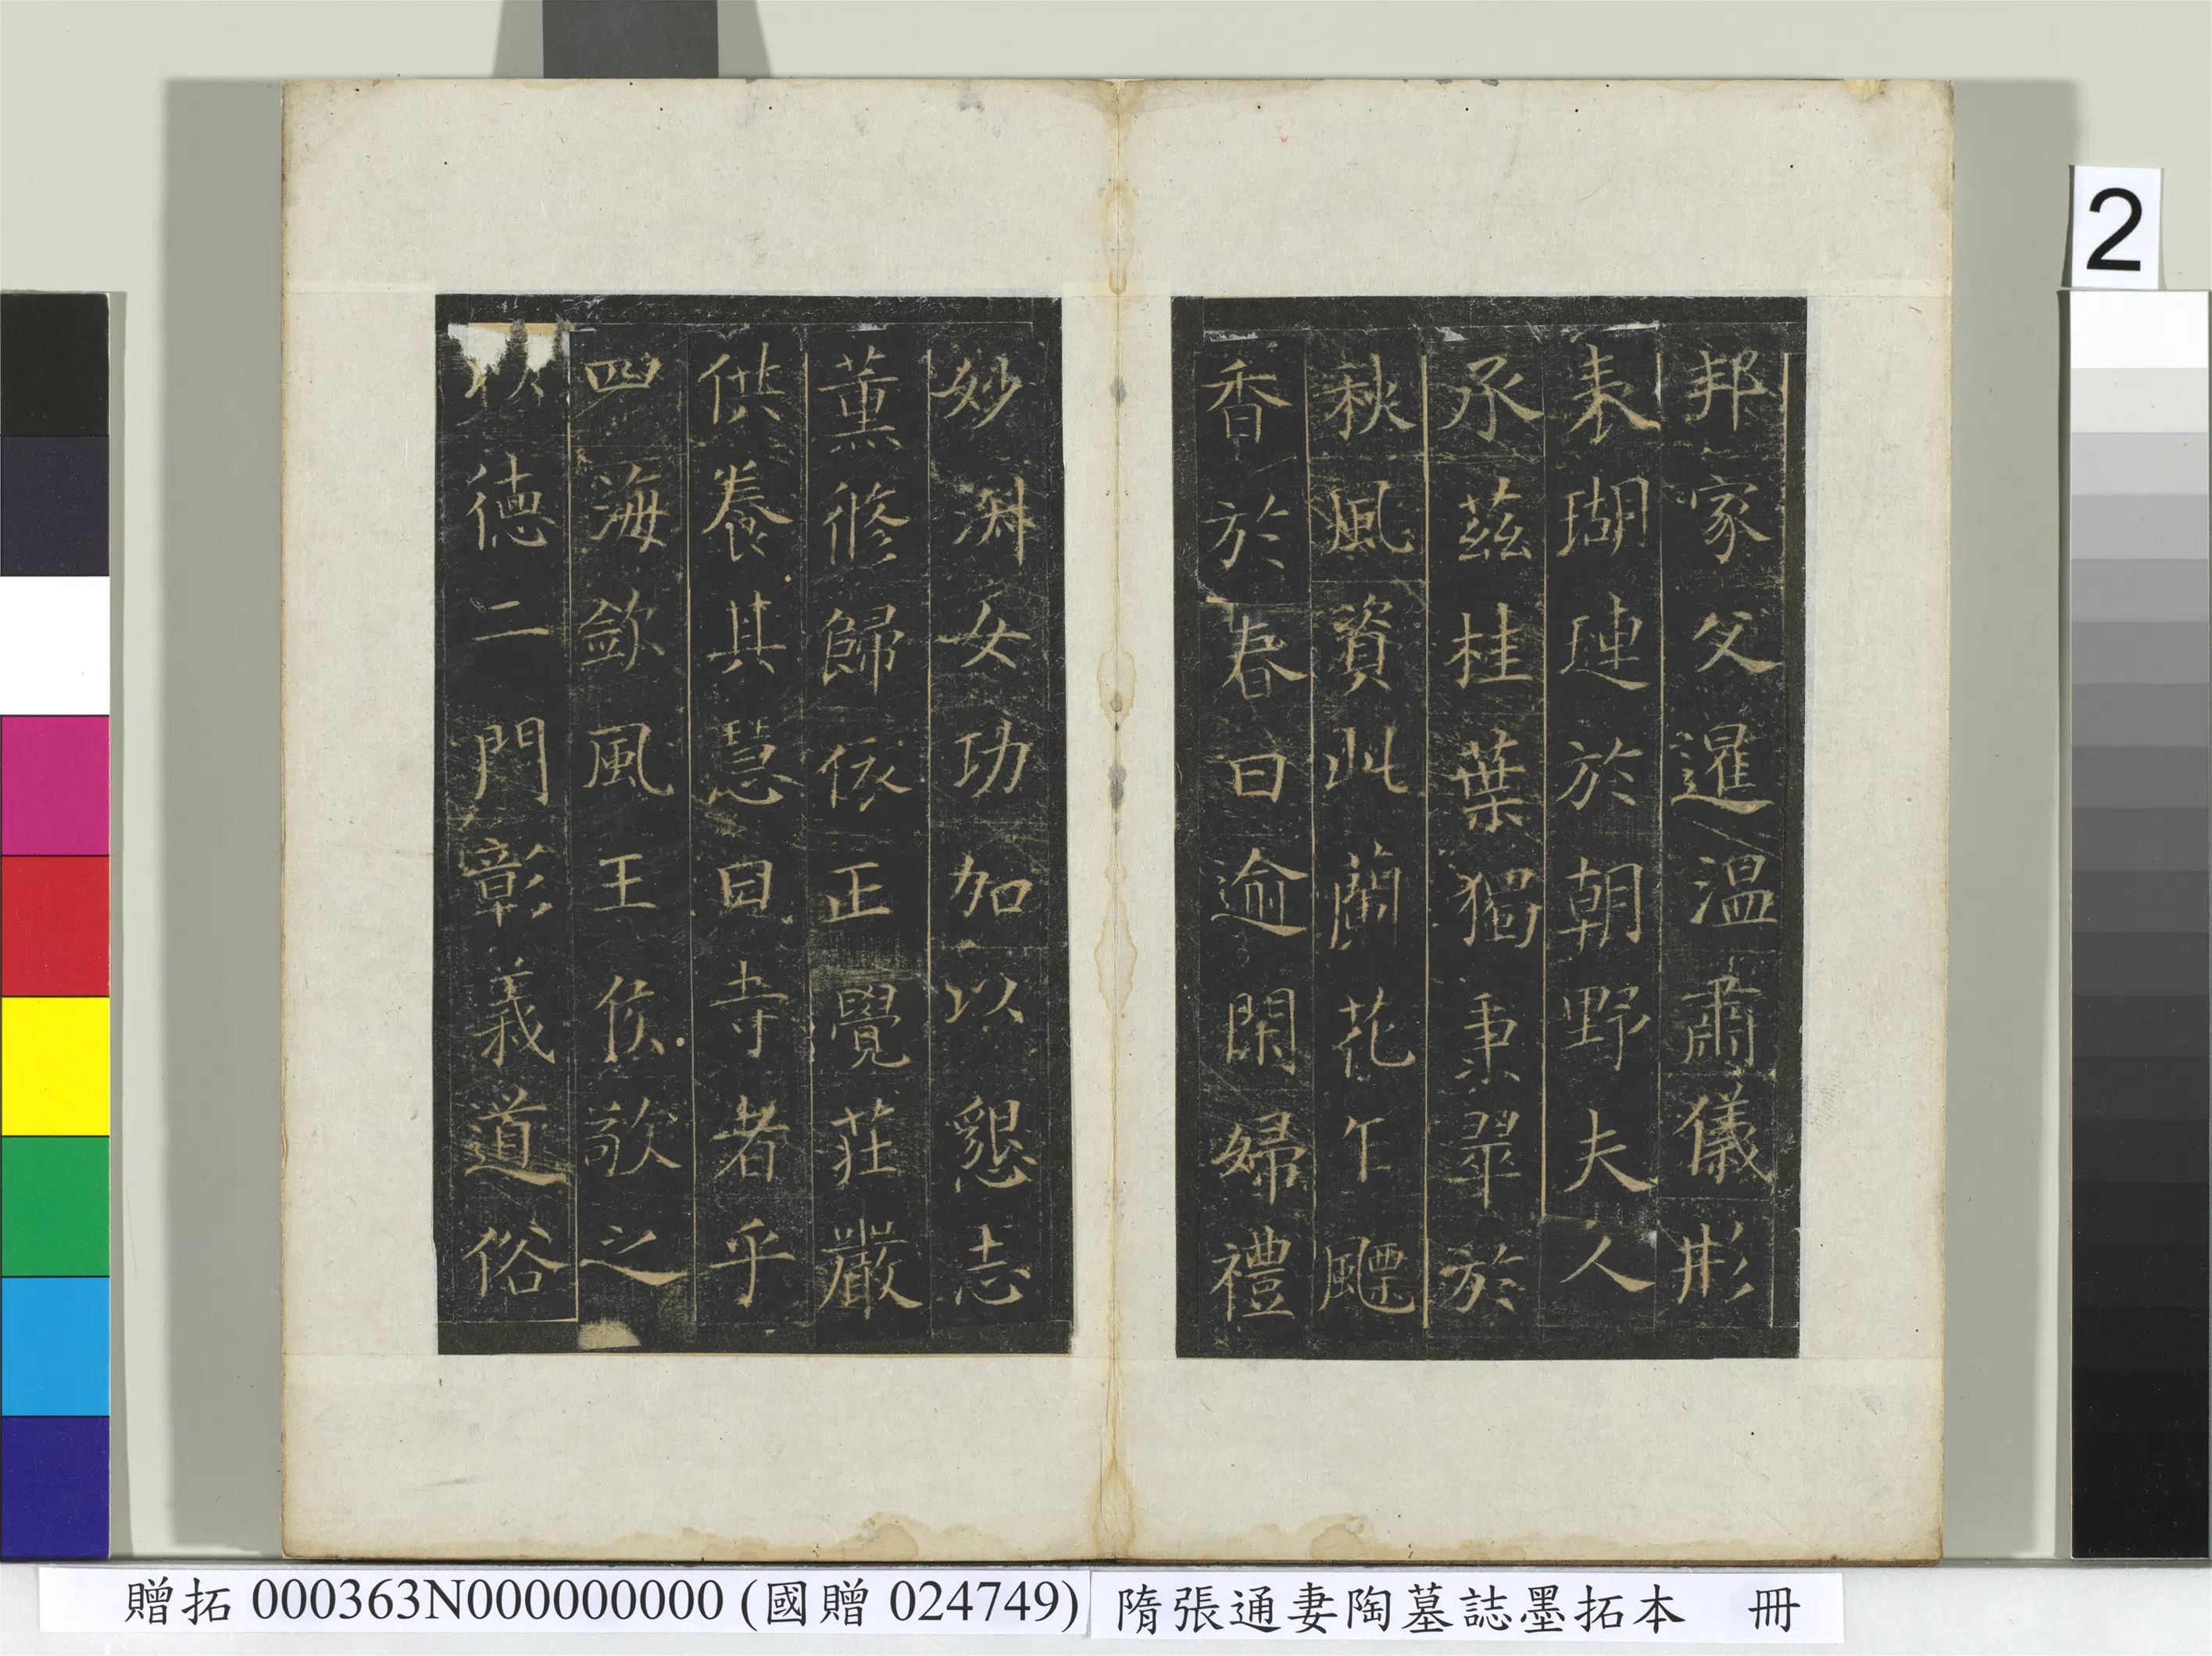 2
邦家父暹温肅儀形
表瑚璉於朝野夫人
承茲桂葉獨秉翠於
秋風資此蘭花乍飄
香於春日逾閑婦禮
妙渊女功加以懇志
薰修歸依正覺莊嚴
供養其慧日寺者乎
四海欽風王侯敬之
以德二門彰義道俗
贈拓 000363N000000000 (國贈 024749) 隋張通妻陶墓誌墨拓本 冊